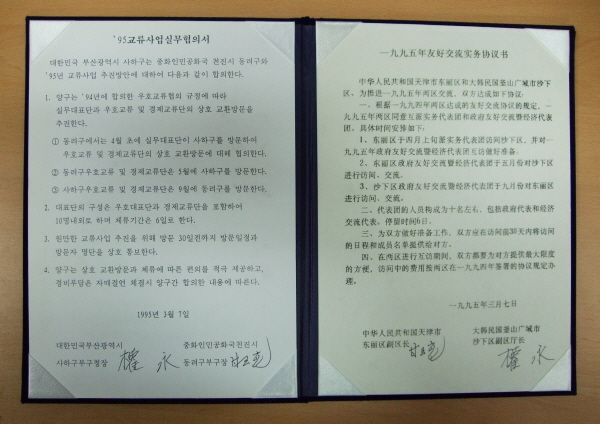 '95교류사업실무협의서
대한민국 부산광역시 사하구는 중화인민공화국 천진시 동려구와
'95년 교류사업 추진방안에 대하여 다음과 같이 합의한다.
1. 양구는 '94년에 합의한 우호교류협의 규정에 따라
실무대표단과 우호교류 및 경제교류단의 상호 교환방문을
추진한다.
① 동려구에서는 4월 초에 실무대표단이 사하구를 방문하여
우호교류 및 경제교류단의 상호 교환방문에 대해 협의한다.
② 동려구우호교류 및 경제교류단은 5월에 사하구를 방문한다.
③ 사하구우호교류 및 경제교류단은 9월에 동려구를 방문한다.
2. 대표단의 구성은 우호대표단과 경제교류단을 포함하여
10명내외로 하며 체류기간은 6일로 한다.
3. 원만한 교류사업 추진을 위해 방문 30일전까지 방문일정과
방문자 명단을 상호 통보한다.
4. 양구는 상호 교환방문과 체류에 따른 편의를 적극 제공하고,
경비부담은 자매결연 체결시 양구간 합의한 내용에 따른다.
1995년 3월 7일
대한민국부산광역시 중화인민공화국천진시
사하구부구청장 權 永 동려구부구장
一九九五年友好交流实务协议书
中华人民共和国天津市东丽区和大韩民国釜山广城市沙下
区，为推进一九九五年两区交流，双方达成如下协议：
一、根据一九九四年两区达成的友好交流协议的规定，一
九九五年两区同意互派实务代表团和政府友好交流暨经济代表
团。具体时间安排如下：
1、东丽区于四月上旬派实务代表团访问沙下区，并对一
九九五年政府友好交流暨经济代表团互访做好准备。
2、东丽区政府友好交流暨经济代表团于五月份对沙下区
进行访问、交流。
3、沙下区政府友好交流暨经济代表团于九月份对东丽区
进行访问、交流。
二、代表团的人员构成为十名左右，包括政府代表和经济
交流代表，停留时间6日。
三、为双方做好准备工作，双方应在访问前30天内将访问
的日程和成员名单提供给对方。
四、在两区进行互访期间，双方都要为对方提供最大限度
的方便，访问中的费用按两区在一九九四年签署的协议规定办
理。
一九九五年三月七日
中华人民共和国天津市 大韩民国釜山广城市
东丽区副区长 沙下区副区厅长
權 永